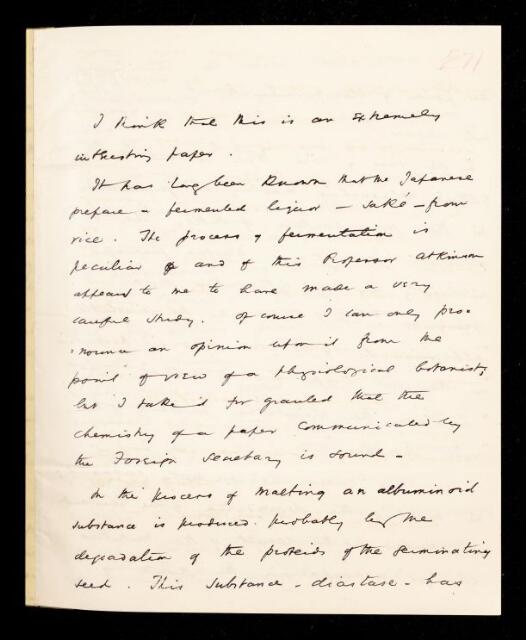 271
I think that this is an extremely
interesting paper.
It has long been known that the Japanese
prepare a fermented liquor – saké – from
rice. The process of fermentation is
peculiar and of this Professor Atkinson
appears to me to have made a very
careful study. Of course I can only pro-
-nounce an opinion upon it from the
point of view of a physiological botanist,
but I take it for granted that the
chemistry of a paper communicated by
the Foreign Secretary is sound –
In the process of malting an albuminoid
substance is produced probably by the
degradation of the proteids of the germinating
seed. This substance – diastase – has